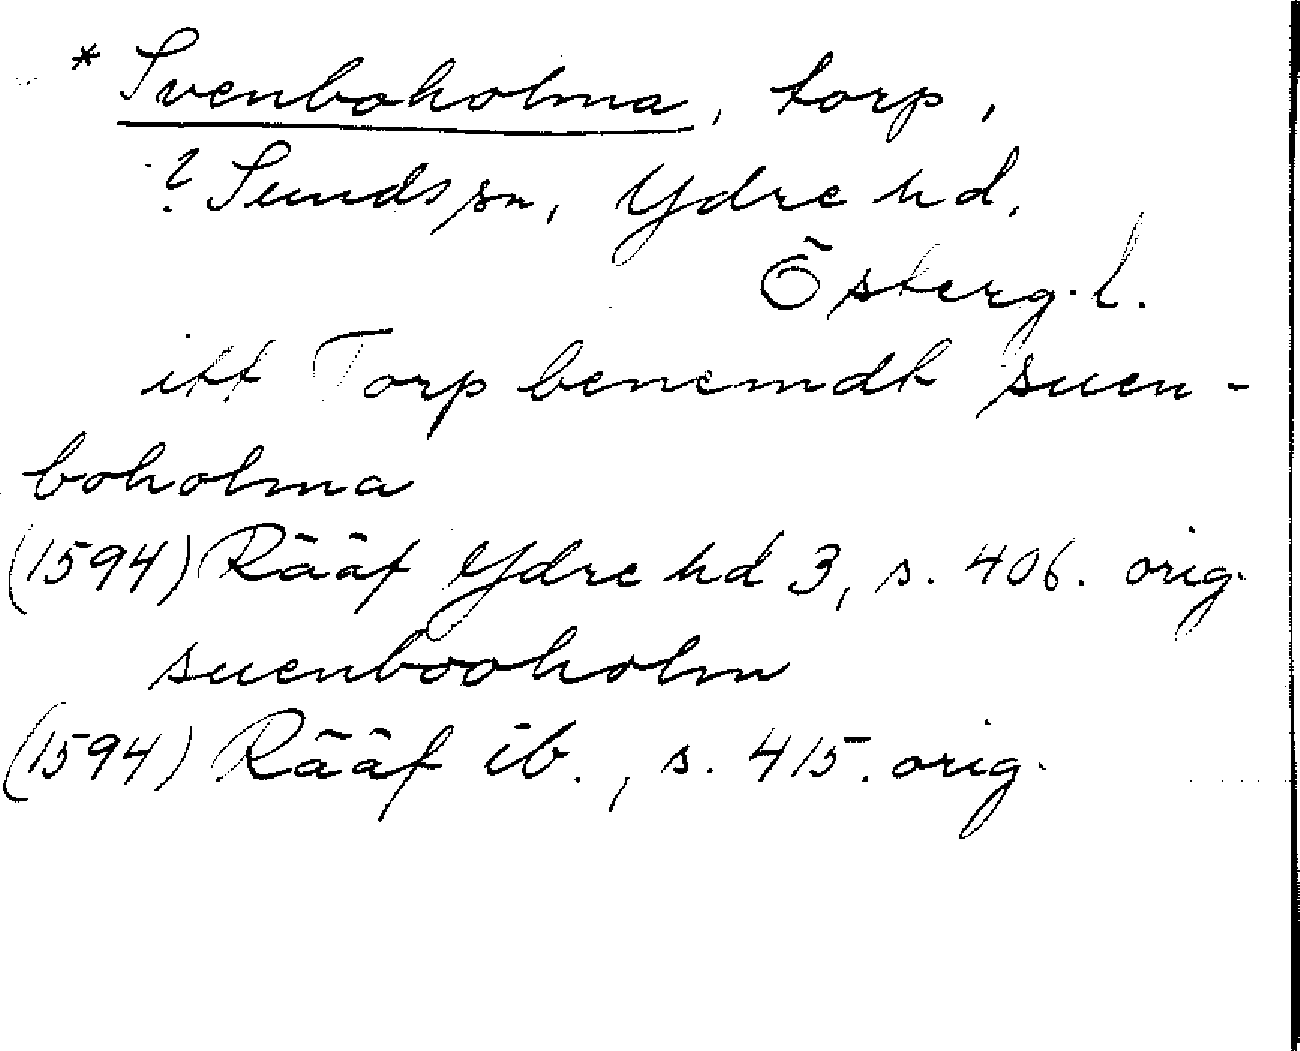 * Svenboholma, torp,
? Sunds sn, Ydre hd.
Österg. l.
itt Torp benemdh suen-
boholma
(1594) Rääf Ydre hd 3, s. 406. orig.
suenbooholm
(1594) Rääf ib., s. 415. orig.